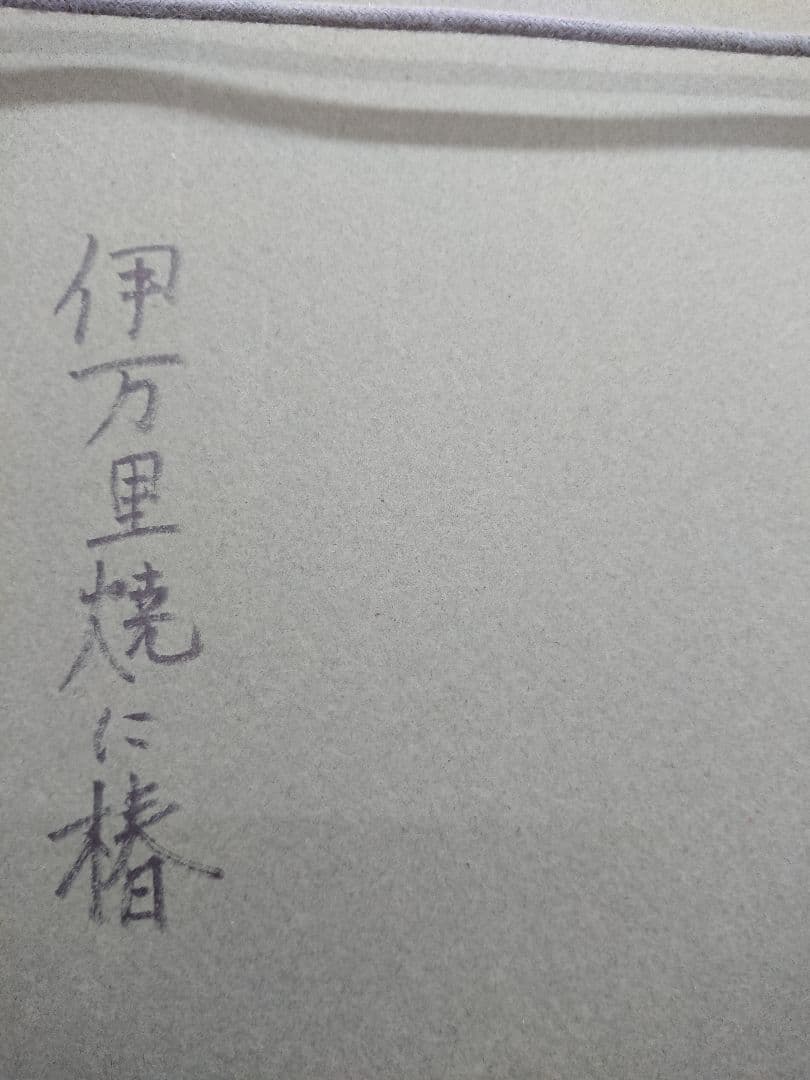 伊万里焼に椿